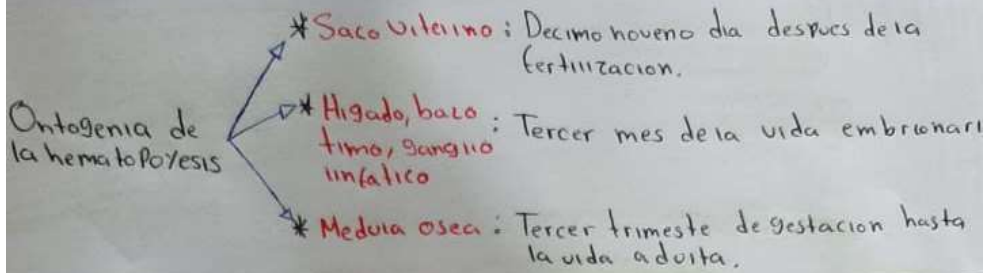 Ontogenia de
la hematopoyesis
* Saco Vitelino : Decimo noveno dia despues de la
fertilizacion.
* Higado, bazo
timo, ganglio
linfatico
: Tercer mes de la vida embrionari
* Medula osea : Tercer trimeste de gestacion hasta
la vida adulta.